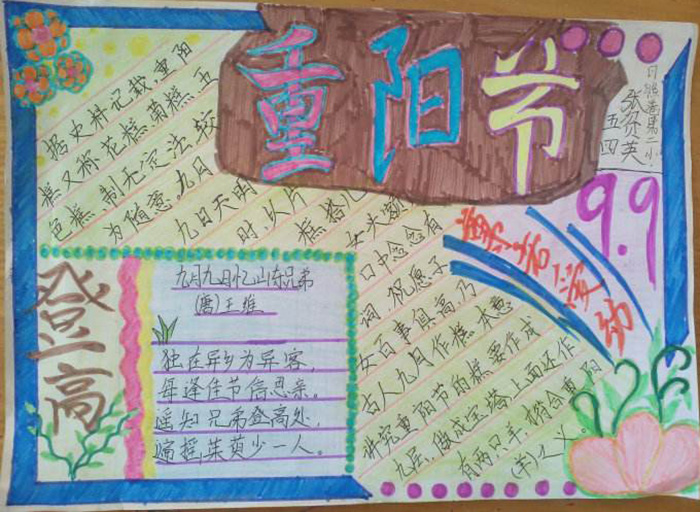 重阳节
张贺英
五四
9.9
据史料记载,重阳
糕又称花糕菊糕五
色糕,制无定法较
为随意。九月
九日天明
时,以片
糕搭儿
女头额
口中念念有
词,祝愿子
女百事俱高,乃
古人九月作糕本意
讲究重阳节的糕要作成
九层,做成宝塔,上面还作
有两只羊,符合重阳
(羊)之义。
登高
九月九日忆山东兄弟
(唐)王维
独在异乡为异客,
每逢佳节倍思亲。
遥知兄弟登高处,
遍插茱萸少一人。